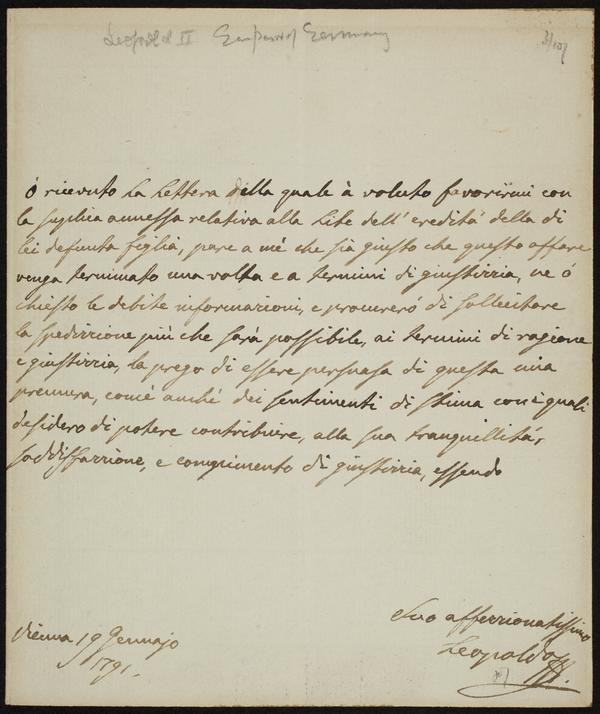 Leopold II Emperor of Germany
ò ricevuto la Lettera della quale à voluto favorirmi con
la suplica annessa relativa alla Lite dell' eredità della di
lei defunta figlia, pare a mé che sia giusto che questo affare
venga terminato una volta e a termini di giustizzia, ne ó
chiesto le debite informazioni, e procureró di sollecitare
la spedizzione più che sarà possibile, ai termini di ragione
e giustizzia, la prego di essere persuasa di questa mia
premura, com'é anché dei sentimenti di stima con i quali
desidero di potere contribuire, alla sua tranquillitá,
soddisfazzione, e compimento di giustizzia, essendo
Suo affezzionatissimo
Leopoldo
Vienna 19 Gennajo
1791.